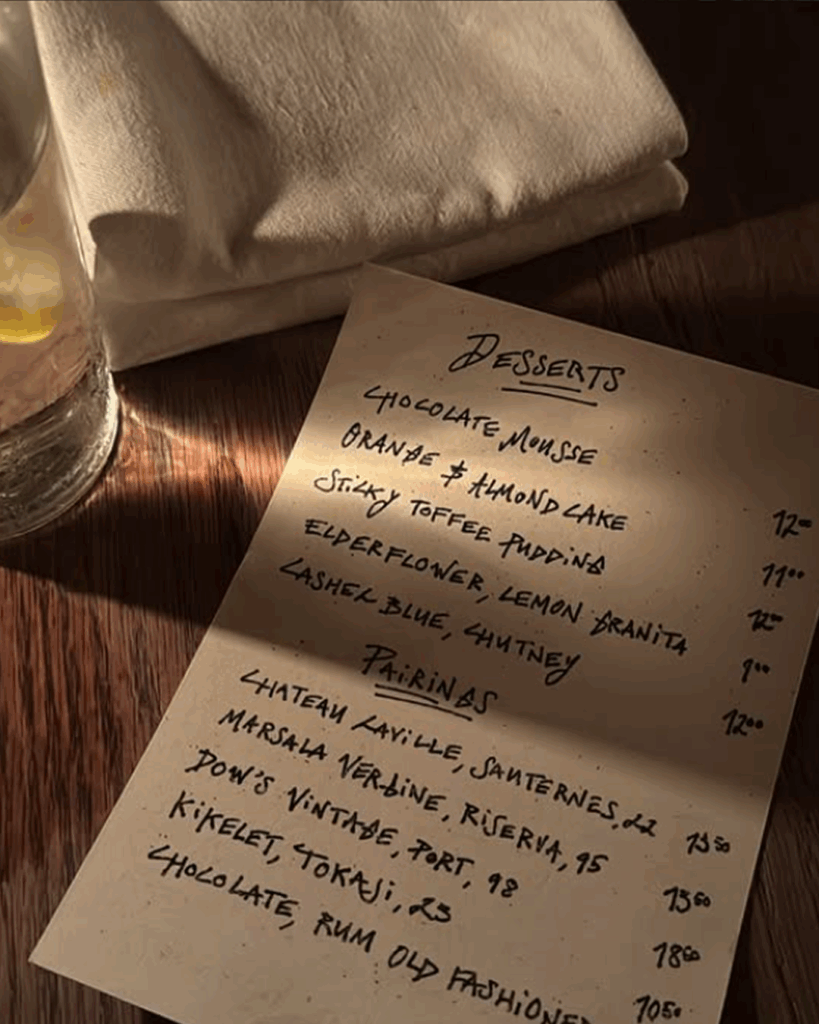 DESSERTS
CHOCOLATE MOUSSE 12⁰⁰
ORANGE & ALMOND CAKE 11⁰⁰
STICKY TOFFEE PUDDING 12⁰⁰
ELDERFLOWER, LEMON GRANITA 9⁰⁰
CASHEL BLUE, CHUTNEY 12⁰⁰
PAIRINGS
CHATEAU LAVILLE, SAUTERNES, 22 13⁵⁰
MARSALA VERGINE, RISERVA, 95 15⁵⁰
DOW'S VINTAGE, PORT, 98 18⁵⁰
KIKELET, TOKAJI, 23 10⁵⁰
CHOCOLATE, RUM OLD FASHIONED